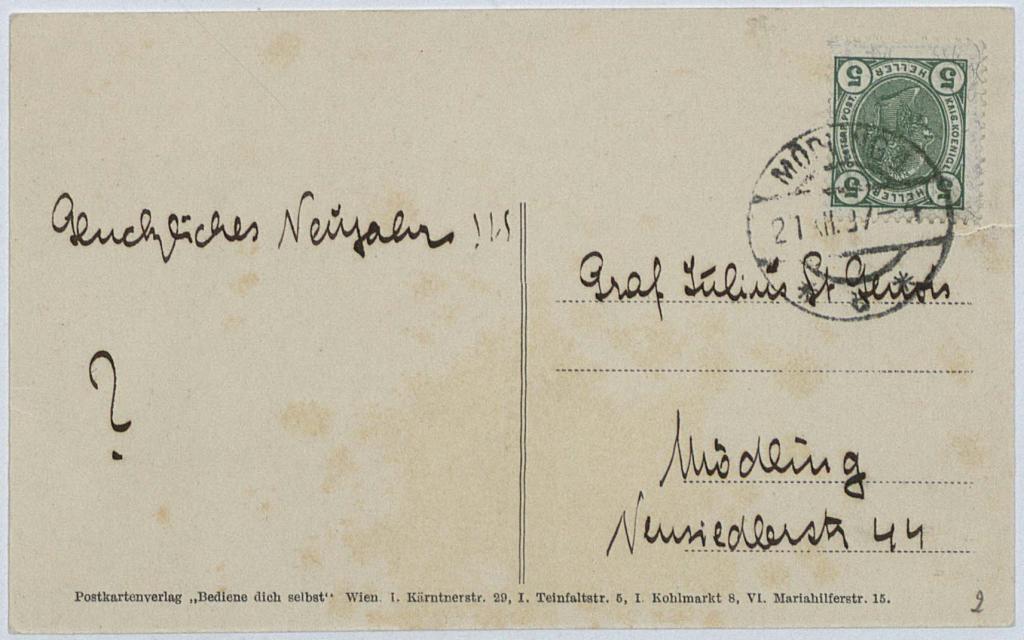 Glückliches Neujahr !!!
?
5 HELLER 5
KAIS. KOENIGL.
5 HELLER
MÖDLING
21 XII. 07
Graf Julius St Genois
Mödling
Neusiedlerstr 44
Postkartenverlag „Bediene dich selbst“ Wien. I. Kärntnerstr. 29, I. Teinfaltstr. 5, I. Kohlmarkt 8, VI. Mariahilferstr. 15.
2